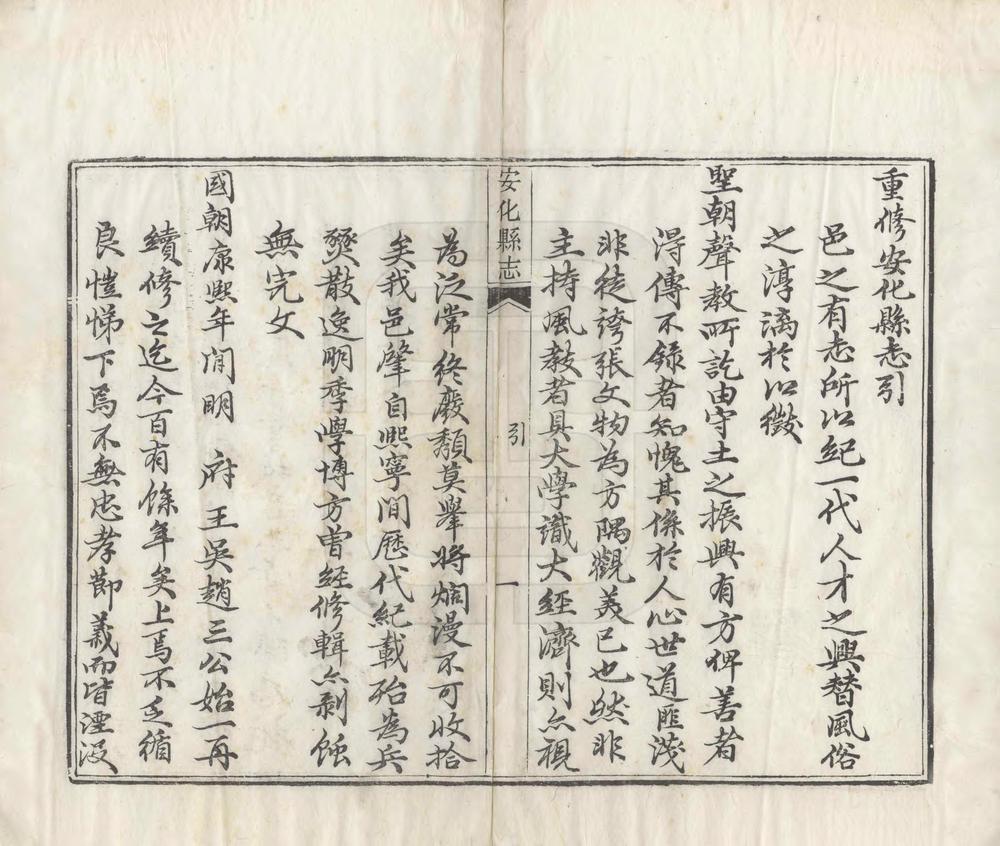 重修安化縣志引
邑之有志所以紀一代人才之興替風俗
之淳漓於以徵
聖朝聲教所訖由守土之振興有方俾善者
得傳不錄者知愧其係於人心世道匪淺
非徒誇張文物為方隅觀美已也然非
主持風教者具大學識大經濟則亦視
安化縣志
引
一
為泛常終廢頹莫舉將熵漫不可收拾
矣我邑肇自熙寧間歷代紀載殆為兵
燹散逸明季學博方曾經修輯亦剥蝕
無完文
國朝康熙年間明 府王吳趙三公始一再
續修之迄今百有餘年矣上焉不乏循
良愷悌下焉不無忠孝節義而皆湮沒